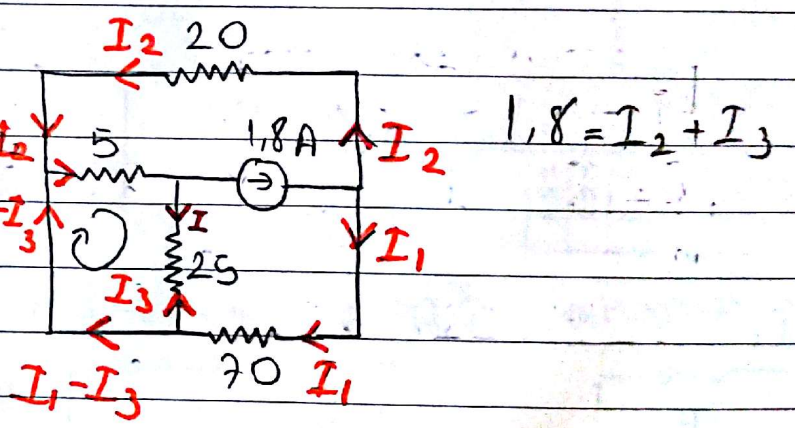 I₂ 20
5 1,8A I₂ 1,8 = I₂ + I₃
I I₁
I₃ 25
I₁-I₃ 70 I₁